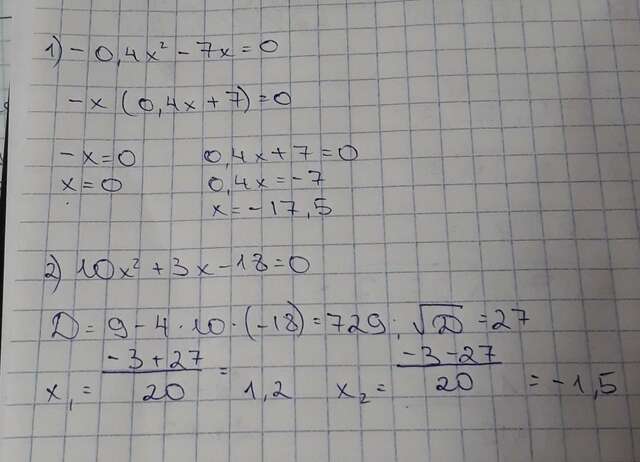 1) - 0,4x² - 7x = 0
-x (0,4x + 7) = 0
-x = 0 0,4x + 7 = 0
x = 0 0,4x = -7
x = -17,5
2) 10x² + 3x - 18 = 0
D = 9 - 4 · 10 · (-18) = 729; √D = 27
x₁ = (-3 + 27)/20 = 1,2 x₂ = (-3 - 27)/20 = -1,5